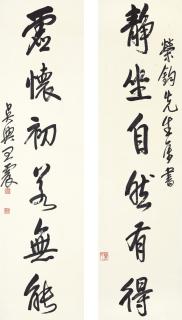 靜坐自然有得
榮鈞先生屬書
虛懷初若無能
吳興王震